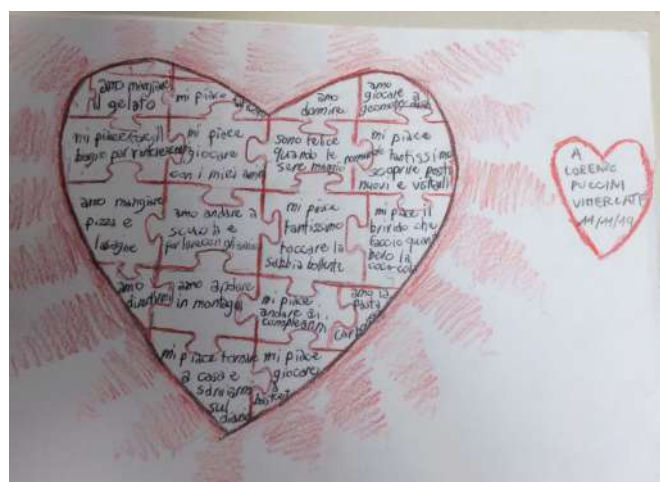 amo mangiare
il gelato
mi piace
amo
dormire
amo
giocare a
mi piace fare il
bagno per rinfrescarmi
mi piace
giocare
con i miei amici
sono felice
quando le
sere
mi piace
tantissimo
scoprire posti
nuovi e visitarli
amo mangiare
pizza e
lasagne
amo andare a
scuola e
mi piace
tantissimo
toccare la
sabbia bollente
mi piace il
brivido che
faccio quando
bevo la
coca cola
amo
divertirmi
amo andare
in montagna
mi piace
andare ai
compleanni
amo la
pasta
carbonara
mi piace tornare
a casa e
sdraiarmi
sul
divano
mi piace
giocare
a
basket
A
LORENZO
PUCCINI
VIMERCATE
11/11/19